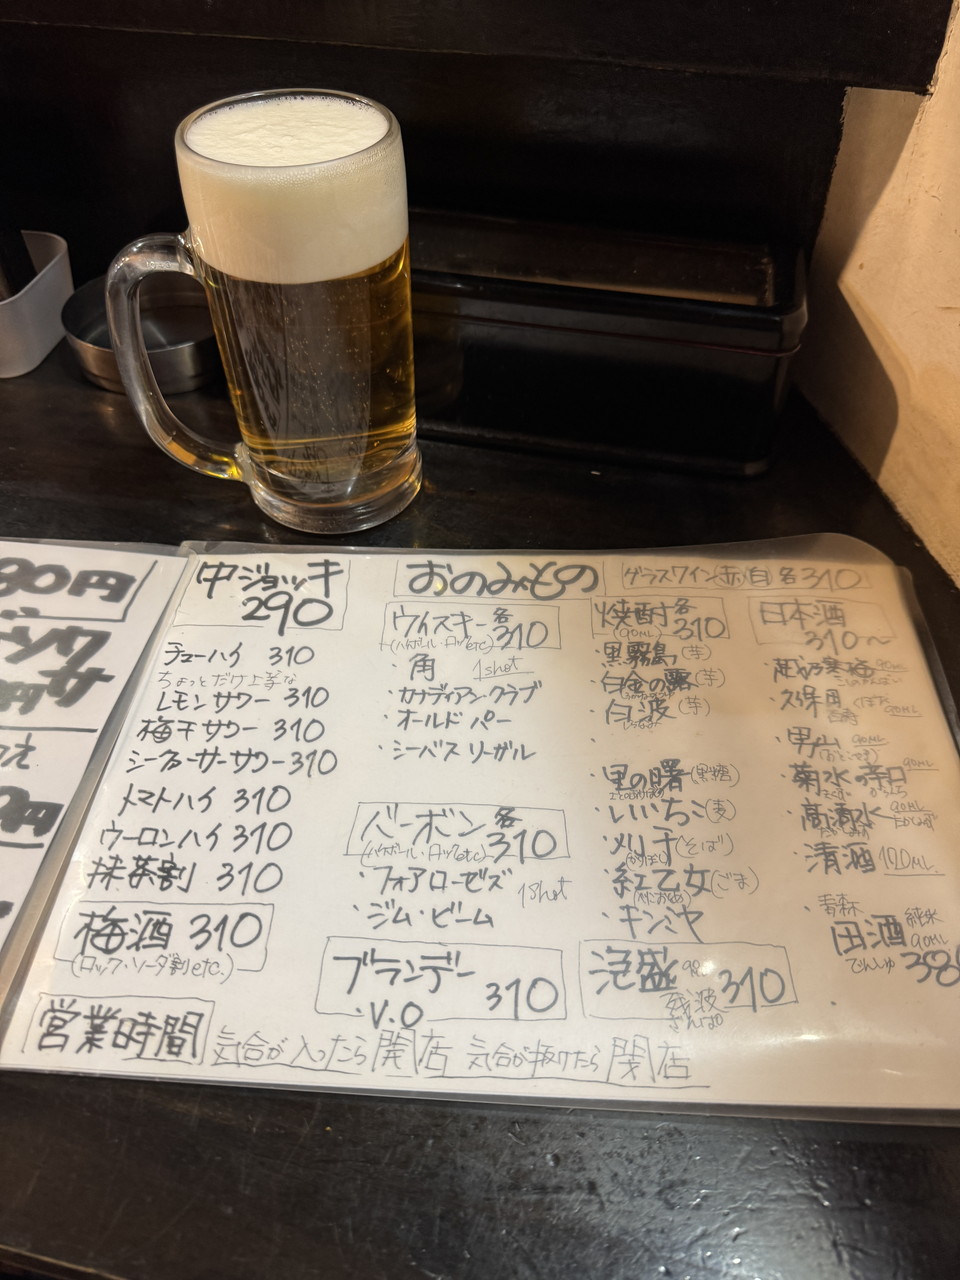 80円
中ジョッキ
290
チューハイ 310
ちょっとだけ上等な
レモンサワー 310
梅干サワー 310
シークァーサーサワー 310
トマトハイ 310
ウーロンハイ 310
抹茶割 310
梅酒 310
(ロック・ソーダ割 etc.)
おのみもの
ウイスキー 各310
(ハイボール・ロック etc)
・角 1shot
・カナディアンクラブ
・オールド パー
・シーバス リーガル
バーボン 各310
(ハイボール・ロック etc)
・フォアローゼズ 1shot
・ジム・ビーム
ブランデー
・V.O 310
グラスワイン 赤/白 各310
焼酎 各310
(90ML)
・黒霧島 (芋)
・白金の露 (芋)
・白波 (芋)
・里の曙 (黒糖)
・いいちこ (麦)
・刈干 (そば)
・紅乙女 (ごま)
・キンミヤ
泡盛 310
残波
ざんぱ
日本酒
310〜
・越乃寒梅 90ML
・久保田 90ML
・男山 90ML
・菊水の辛口 90ML
・高清水 90ML
・清酒
・青森
田酒 純米
90ML
でんしゅ 380
営業時間 気合が入ったら開店 気合が抜けたら閉店